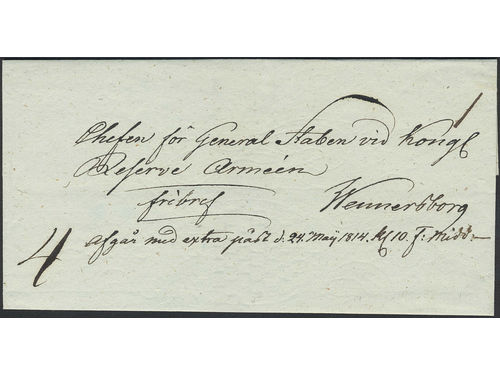 Chefen för General Staben vid Kongl
Reserve Arméen
fribref Wennersborg
4 Afgår med extra påst d. 24. Maÿ 1814. Kl 10. f: midd.